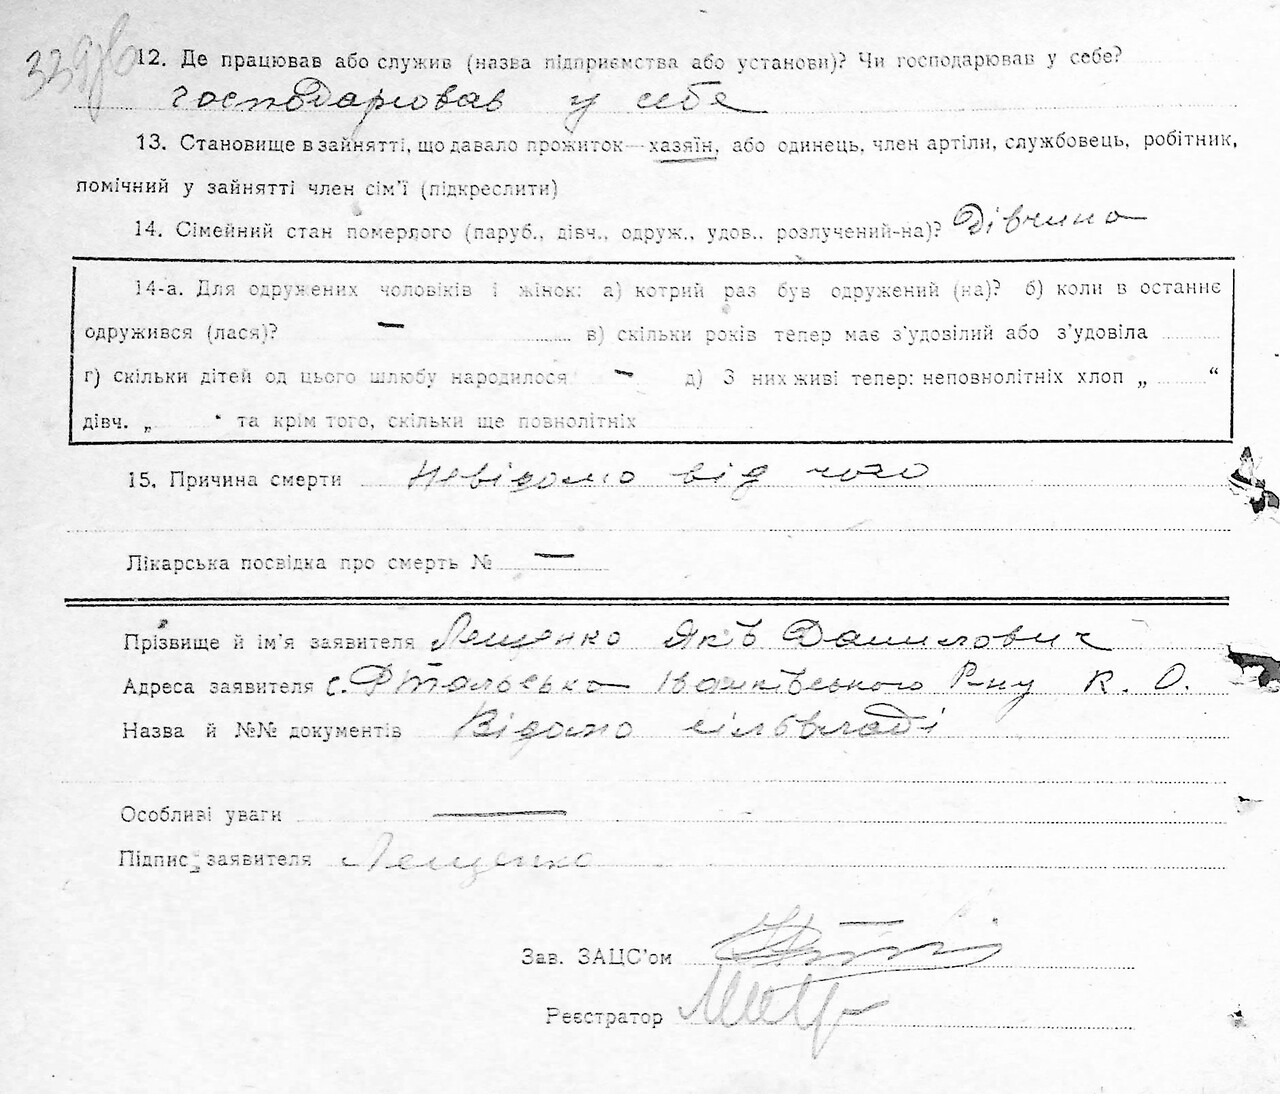 339/в
12. Де працював або служив (назва підприємства або установи)? Чи господарював у себе?
господарював у себе
13. Становище в зайнятті, що давало прожиток—хазяїн, або одинець, член артілі, службовець, робітник,
помічний у зайнятті член сім'ї (підкреслити)
14. Сімейний стан померлого (паруб., дівч., одруж., удов., розлучений-на)? Дівчина
14-а. Для одружених чоловіків і жінок: а) котрий раз був одружений (на)? б) коли в останнє
одружився (лася)? — в) скільки років тепер має з'удовілий або з'удовіла
г) скільки дітей од цього шлюбу народилося — д) З них живі тепер: неповнолітніх хлоп „ “
дівч. „ “ та крім того, скільки ще повнолітніх
15. Причина смерти Невідомо від чого
Лікарська посвідка про смерть № —
Прізвище й ім'я заявителя Лещенко Яків Данилович
Адреса заявителя с. Іванківського Р-ну К. О.
Назва й №№ документів Відомо сільвладі
Особливі уваги —
Підпис заявителя Лещенко
Зав. ЗАЦС'ом
Реєстратор